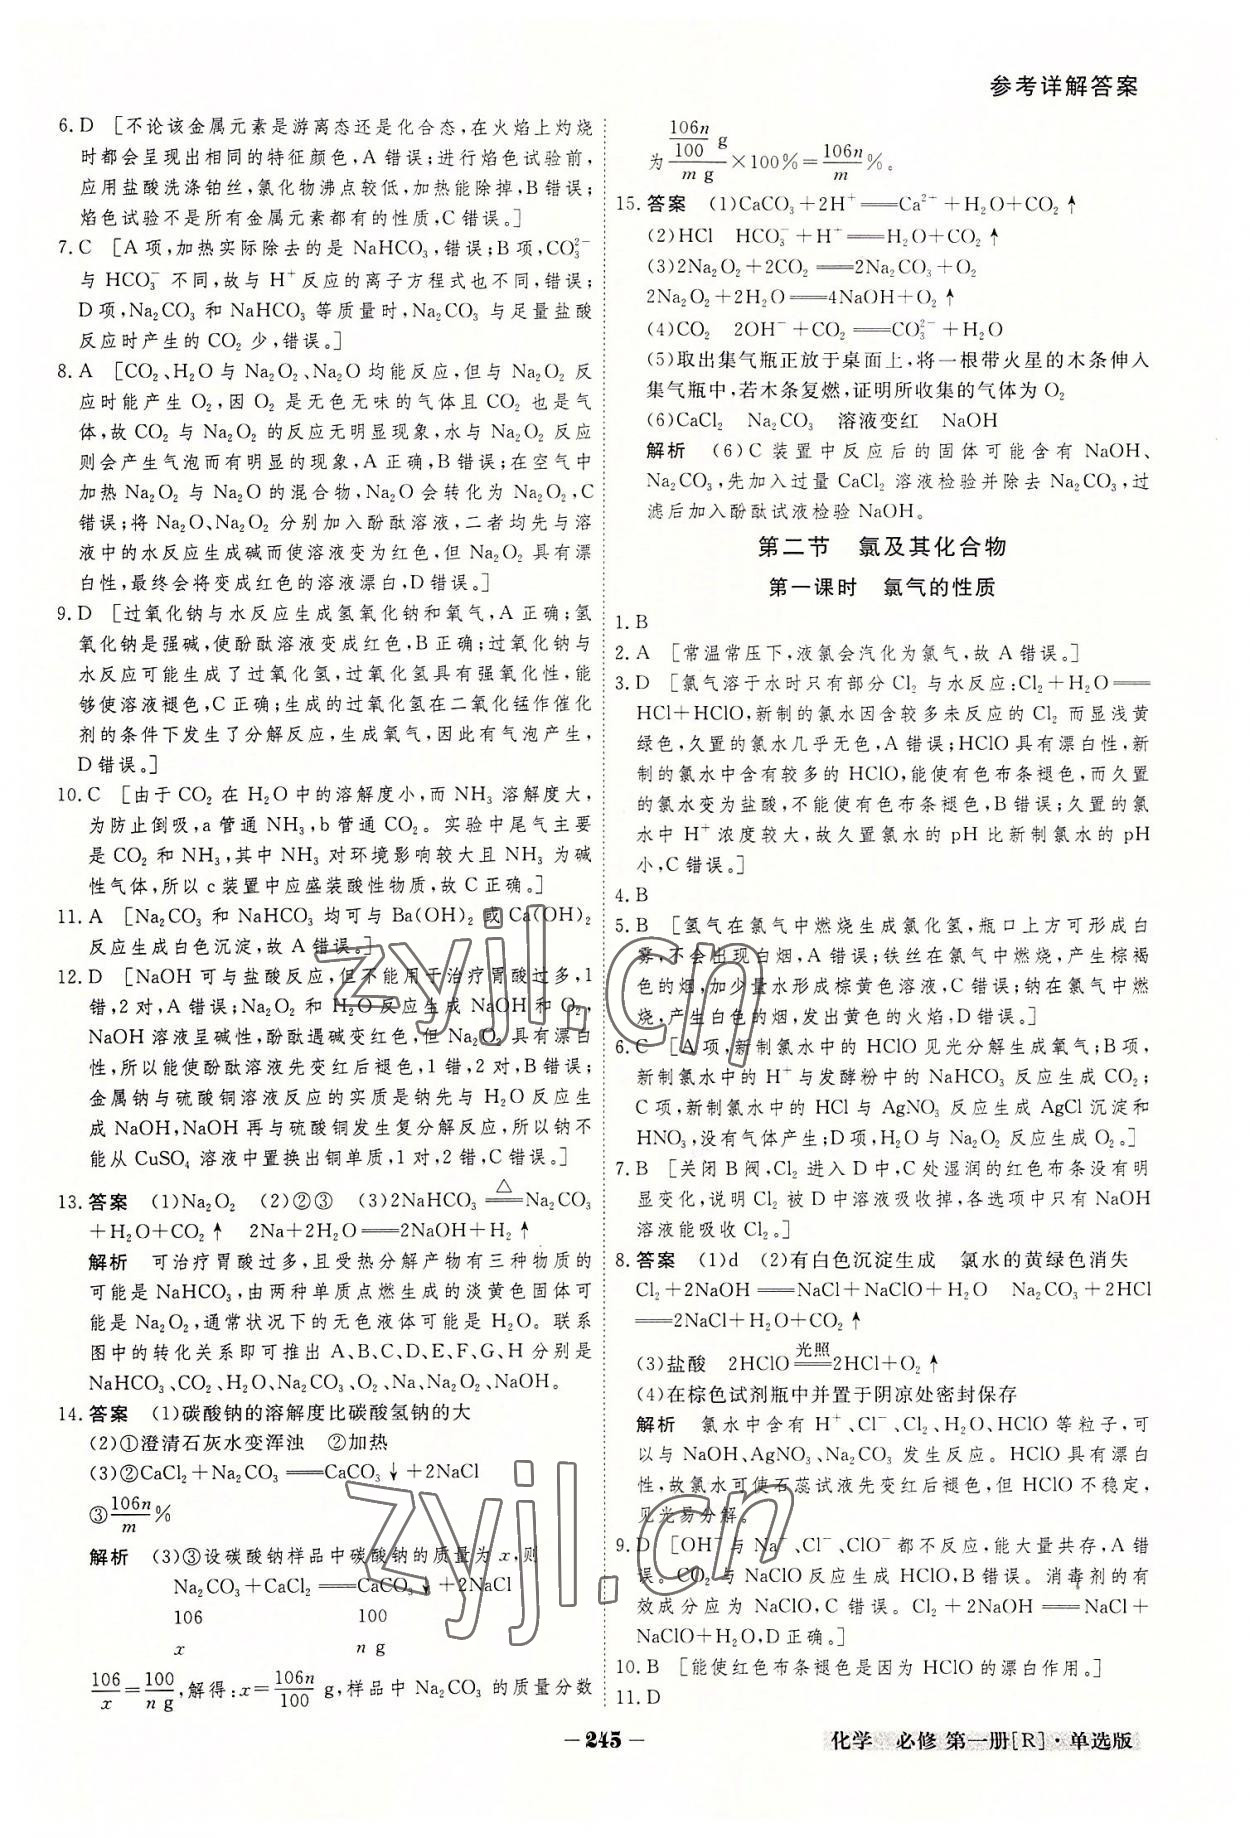 参考详解答案
6. D [不论该金属元素是游离态还是化合态,在火焰上灼烧
时都会呈现出相同的特征颜色,A错误;进行焰色试验前,
应用盐酸洗涤铂丝,氯化物沸点较低,加热能除掉,B错误;
焰色试验不是所有金属元素都有的性质,C错误。]
7. C [A项,加热实际除去的是NaHCO₃,错误;B项,CO₃²⁻
与HCO₃⁻不同,故与H⁺反应的离子方程式也不同,错误;
D项,Na₂CO₃和NaHCO₃等质量时,Na₂CO₃与足量盐酸
反应时产生的CO₂少,错误。]
8. A [CO₂、H₂O与Na₂O₂、Na₂O均能反应,但与Na₂O₂反
应时能产生O₂,因O₂是无色无味的气体且CO₂也是气
体,故CO₂与Na₂O₂的反应无明显现象,水与Na₂O₂反应
则会产生气泡而有明显的现象,A正确,B错误;在空气中
加热Na₂O₂与Na₂O的混合物,Na₂O会转化为Na₂O₂,C
错误;将Na₂O、Na₂O₂分别加入酚酞溶液,二者均先与溶
液中的水反应生成碱而使溶液变为红色,但Na₂O₂具有漂
白性,最终会将变成红色的溶液漂白,D错误。]
9. D [过氧化钠与水反应生成氢氧化钠和氧气,A正确;氢
氧化钠是强碱,使酚酞溶液变成红色,B正确;过氧化钠与
水反应可能生成了过氧化氢,过氧化氢具有强氧化性,能
够使溶液褪色,C正确;生成的过氧化氢在二氧化锰作催化
剂的条件下发生了分解反应,生成氧气,因此有气泡产生,
D错误。]
10. C [由于CO₂在H₂O中的溶解度小,而NH₃溶解度大,
为防止倒吸,a管通NH₃,b管通CO₂。实验中尾气主要
是CO₂和NH₃,其中NH₃对环境影响较大且NH₃为碱
性气体,所以c装置中应盛装酸性物质,故C正确。]
11. A [Na₂CO₃和NaHCO₃均可与Ba(OH)₂或Ca(OH)₂
反应生成白色沉淀,故A错误。]
12. D [NaOH可与盐酸反应,但不能用于治疗胃酸过多,1
错,2对,A错误;Na₂O₂和H₂O反应生成NaOH和O₂,
NaOH溶液呈碱性,酚酞遇碱变红色,但Na₂O₂具有漂白
性,所以能使酚酞溶液先变红后褪色,1错,2对,B错误;
金属钠与硫酸铜溶液反应的实质是钠先与H₂O反应生
成NaOH,NaOH再与硫酸铜发生复分解反应,所以钠不
能从CuSO₄溶液中置换出铜单质,1对,2错,C错误。]
13. 答案 (1)Na₂O₂ (2)②③ (3)2NaHCO₃ =△= Na₂CO₃
+H₂O+CO₂↑ 2Na+2H₂O══2NaOH+H₂↑
解析 可治疗胃酸过多,且受热分解产物有三种物质的
可能是NaHCO₃,由两种单质点燃生成的淡黄色固体可
能是Na₂O₂,通常状况下的无色液体可能是H₂O。联系
图中的转化关系即可推出A、B、C、D、E、F、G、H分别是
NaHCO₃、CO₂、H₂O、Na₂CO₃、O₂、Na、Na₂O₂、NaOH。
14. 答案 (1)碳酸钠的溶解度比碳酸氢钠的大
(2)①澄清石灰水变浑浊 ②加热
(3)②CaCl₂+Na₂CO₃══CaCO₃↓+2NaCl
③106n/m%
解析 (3)③设碳酸钠样品中碳酸钠的质量为x,则
Na₂CO₃+CaCl₂══CaCO₃↓+2NaCl
106 100
x n g
106/x=100/n g,解得:x=106n/100 g,样品中Na₂CO₃的质量分数
为(106n/100 g)/(m g)×100%=106n/m%。
15. 答案 (1)CaCO₃+2H⁺══Ca²⁺+H₂O+CO₂↑
(2)HCl HCO₃⁻+H⁺══H₂O+CO₂↑
(3)2Na₂O₂+2CO₂══2Na₂CO₃+O₂
2Na₂O₂+2H₂O══4NaOH+O₂↑
(4)CO₂ 2OH⁻+CO₂══CO₃²⁻+H₂O
(5)取出集气瓶正放于桌面上,将一根带火星的木条伸入
集气瓶中,若木条复燃,证明所收集的气体为O₂
(6)CaCl₂ Na₂CO₃ 溶液变红 NaOH
解析 (6)C装置中反应后的固体可能含有NaOH、
Na₂CO₃,先加入过量CaCl₂溶液检验并除去Na₂CO₃,过
滤后加入酚酞试液检验NaOH。
第二节 氯及其化合物
第一课时 氯气的性质
1. B
2. A [常温常压下,液氯会汽化为氯气,故A错误。]
3. D [氯气溶于水时只有部分Cl₂与水反应:Cl₂+H₂O══
HCl+HClO,新制的氯水因含较多未反应的Cl₂而显浅黄
绿色,久置的氯水几乎无色,A错误;HClO具有漂白性,新
制的氯水中含有较多的HClO,能使有色布条褪色,而久置
的氯水变为盐酸,不能使有色布条褪色,B错误;久置的氯
水中H⁺浓度较大,故久置氯水的pH比新制氯水的pH
小,C错误。]
4. B
5. B [氢气在氯气中燃烧生成氯化氢,瓶口上方可形成白
雾,不会出现白烟,A错误;铁丝在氯气中燃烧,产生棕褐
色的烟,加少量水形成棕黄色溶液,C错误;钠在氯气中燃
烧,产生白色的烟,发出黄色的火焰,D错误。]
6. C [A项,新制氯水中的HClO见光分解生成氧气;B项,
新制氯水中的H⁺与发酵粉中的NaHCO₃反应生成CO₂;
C项,新制氯水中的HCl与AgNO₃反应生成AgCl沉淀和
HNO₃,没有气体产生;D项,H₂O与Na₂O₂反应生成O₂。]
7. B [关闭B阀,Cl₂进入D中,C处湿润的红色布条没有明
显变化,说明Cl₂被D中溶液吸收掉,各选项中只有NaOH
溶液能吸收Cl₂。]
8. 答案 (1)d (2)有白色沉淀生成 氯水的黄绿色消失
Cl₂+2NaOH══NaCl+NaClO+H₂O Na₂CO₃+2HCl
══2NaCl+H₂O+CO₂↑
(3)盐酸 2HClO =光照= 2HCl+O₂↑
(4)在棕色试剂瓶中并置于阴凉处密封保存
解析 氯水中含有H⁺、Cl⁻、Cl₂、H₂O、HClO等粒子,可
以与NaOH、AgNO₃、Na₂CO₃发生反应。HClO具有漂白
性,故氯水可使石蕊试液先变红后褪色,但HClO不稳定,
见光易分解。
9. D [OH⁻与Na⁺、Cl⁻、ClO⁻都不反应,能大量共存,A错
误。CO₂与NaClO反应生成HClO,B错误。消毒剂的有
效成分应为NaClO,C错误。Cl₂+2NaOH══NaCl+
NaClO+H₂O,D正确。]
10. B [能使红色布条褪色是因为HClO的漂白作用。]
11. D
– 245 –
化学 必修 第一册[R]·单选版
zyjl.cn
zyjl.cn